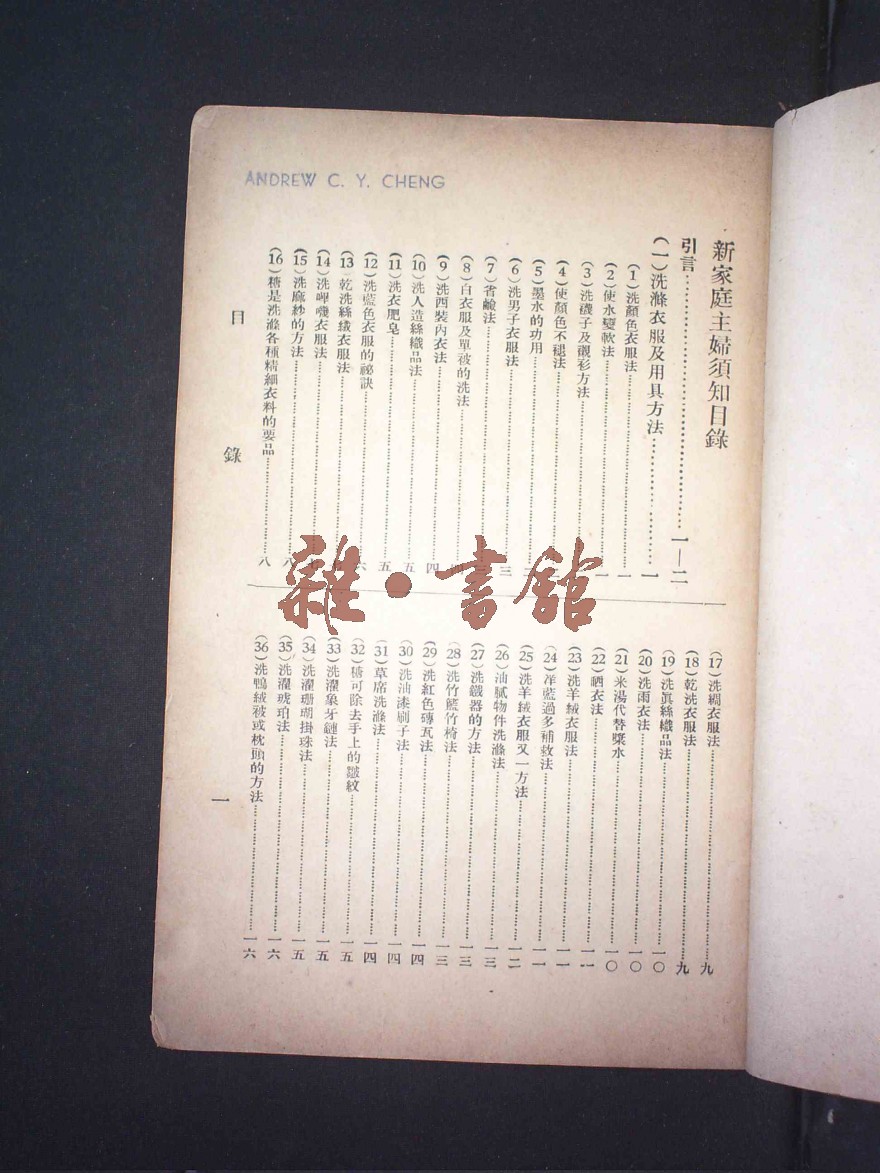 ANDREW C. Y. CHENG
新家庭主婦須知目錄
引言…………一—二
(一)洗滌衣服及用具方法…………一
(1)洗顏色衣服法…………一
(2)使水變軟法…………一
(3)洗襪子及襯衫方法…………
(4)使顏色不褪法…………
(5)墨水的功用…………
(6)洗男子衣服法…………三
(7)省鹼法…………
(8)白衣服及單被的洗法…………四
(9)洗西裝內衣法…………四
(10)洗人造絲織品法…………五
(11)洗衣肥皂…………五
(12)洗藍色衣服的祕訣…………六
(13)乾洗絲絨衣服法…………
(14)洗嗶嘰衣服法…………七
(15)洗麻紗的方法…………八
(16)糖是洗滌各種精細衣料的要品…………八
(17)洗綢衣服法…………九
(18)乾洗衣服法…………九
(19)洗眞絲織品法…………一〇
(20)洗雨衣法…………一〇
(21)米湯代替漿水…………一〇
(22)晒衣法…………一一
(23)洗羊絨衣服法…………一一
(24)洋藍過多補救法…………一一
(25)洗羊絨衣服又一方法…………一二
(26)油膩物件洗滌法…………一三
(27)洗鐵器的方法…………一三
(28)洗竹籃竹椅法…………一三
(29)洗紅色磚瓦法…………一四
(30)洗油漆刷子法…………一四
(31)草席洗滌法…………一四
(32)糖可除去手上的皺紋…………一五
(33)洗濯象牙鏈法…………一五
(34)洗濯珊瑚掛珠法…………一五
(35)洗濯琥珀法…………一六
(36)洗鴨絨被或枕頭的方法…………一六
目錄
一
雜·書館